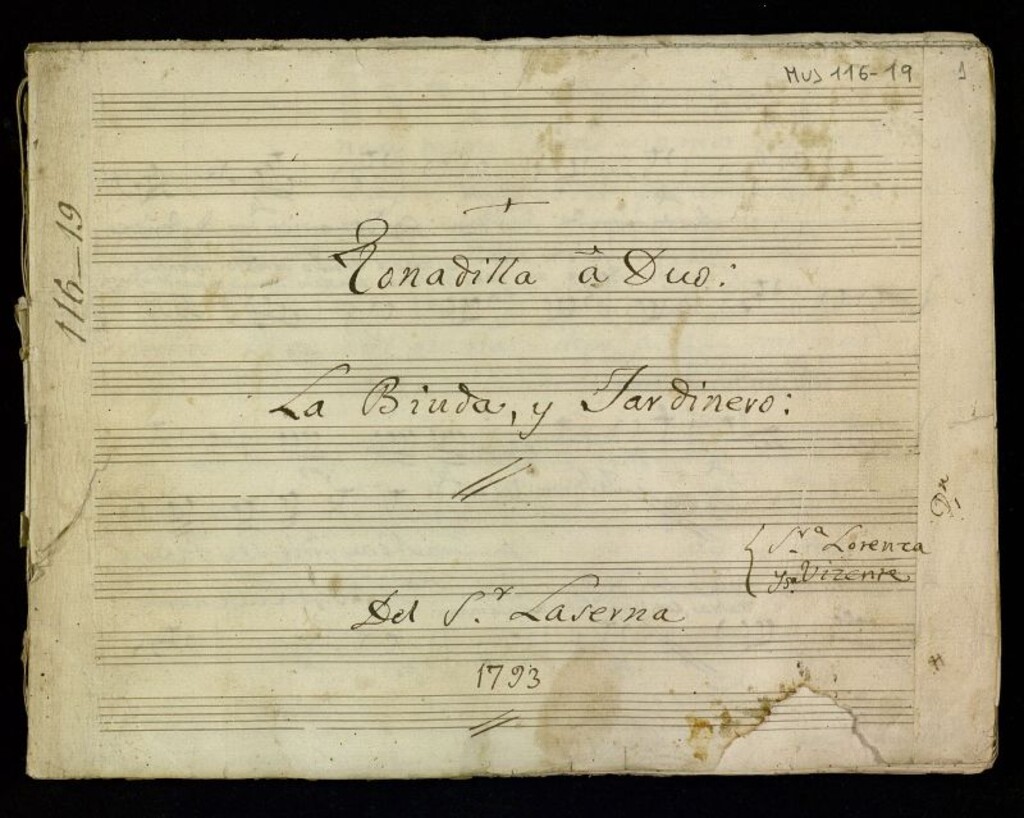 Mus 116-19
1
116-19
Tonadilla â Duo:
La Biuda, y Jardinero:
S.ra Lorenza
Vizente
Del S.r Laserna
1793